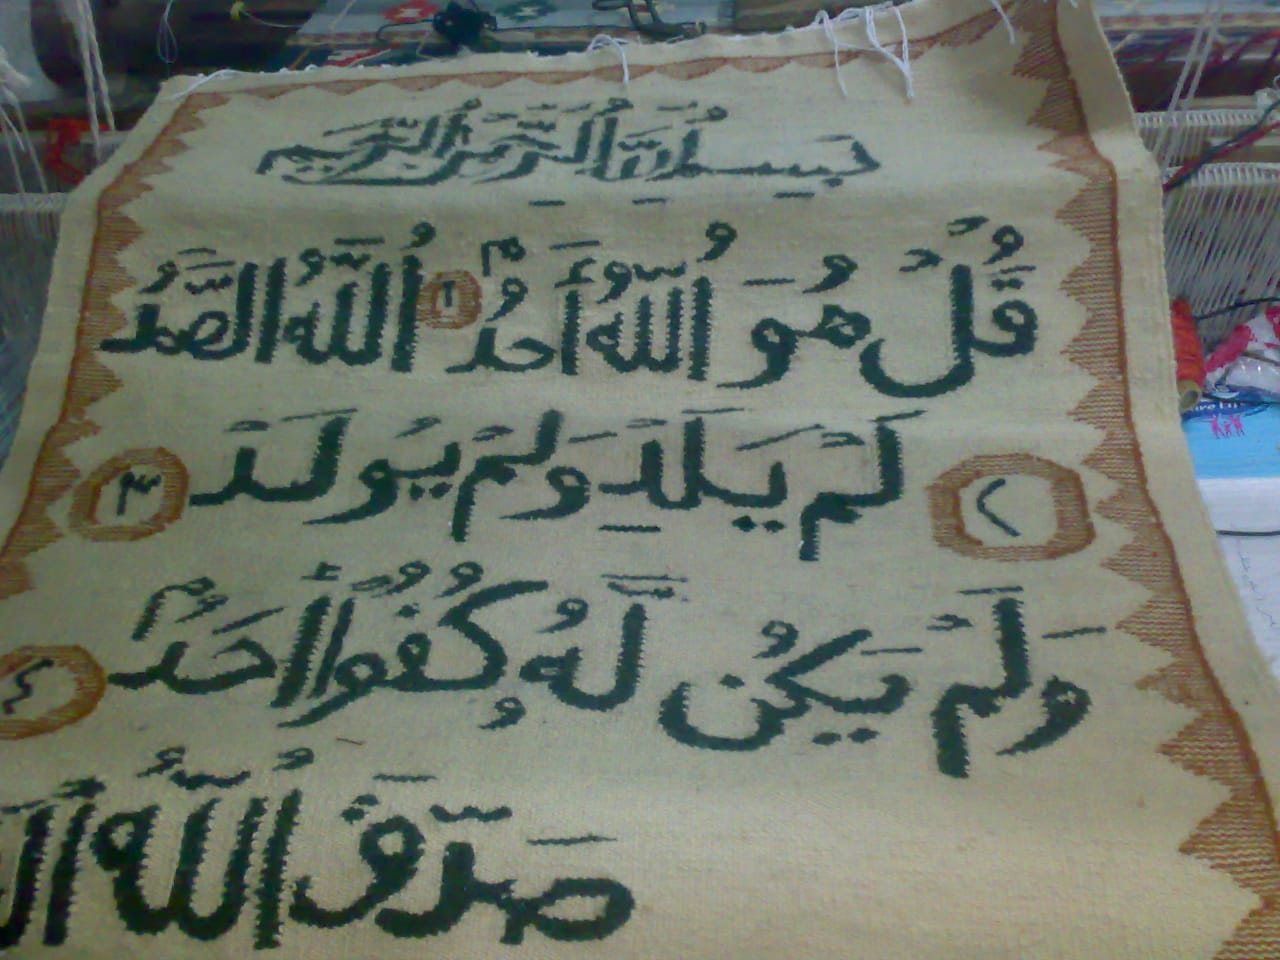 بِسْمِ اللَّهِ الرَّحْمَنِ الرَّحِيمِ
قُلْ هُوَ اللَّهُ أَحَدٌ ١ اللَّهُ الصَّمَدُ
٢ لَمْ يَلِدْ وَلَمْ يُولَدْ ٣
وَلَمْ يَكُنْ لَّهُ كُفُوًا أَحَدٌ ٤
صَدَقَ اللَّهُ